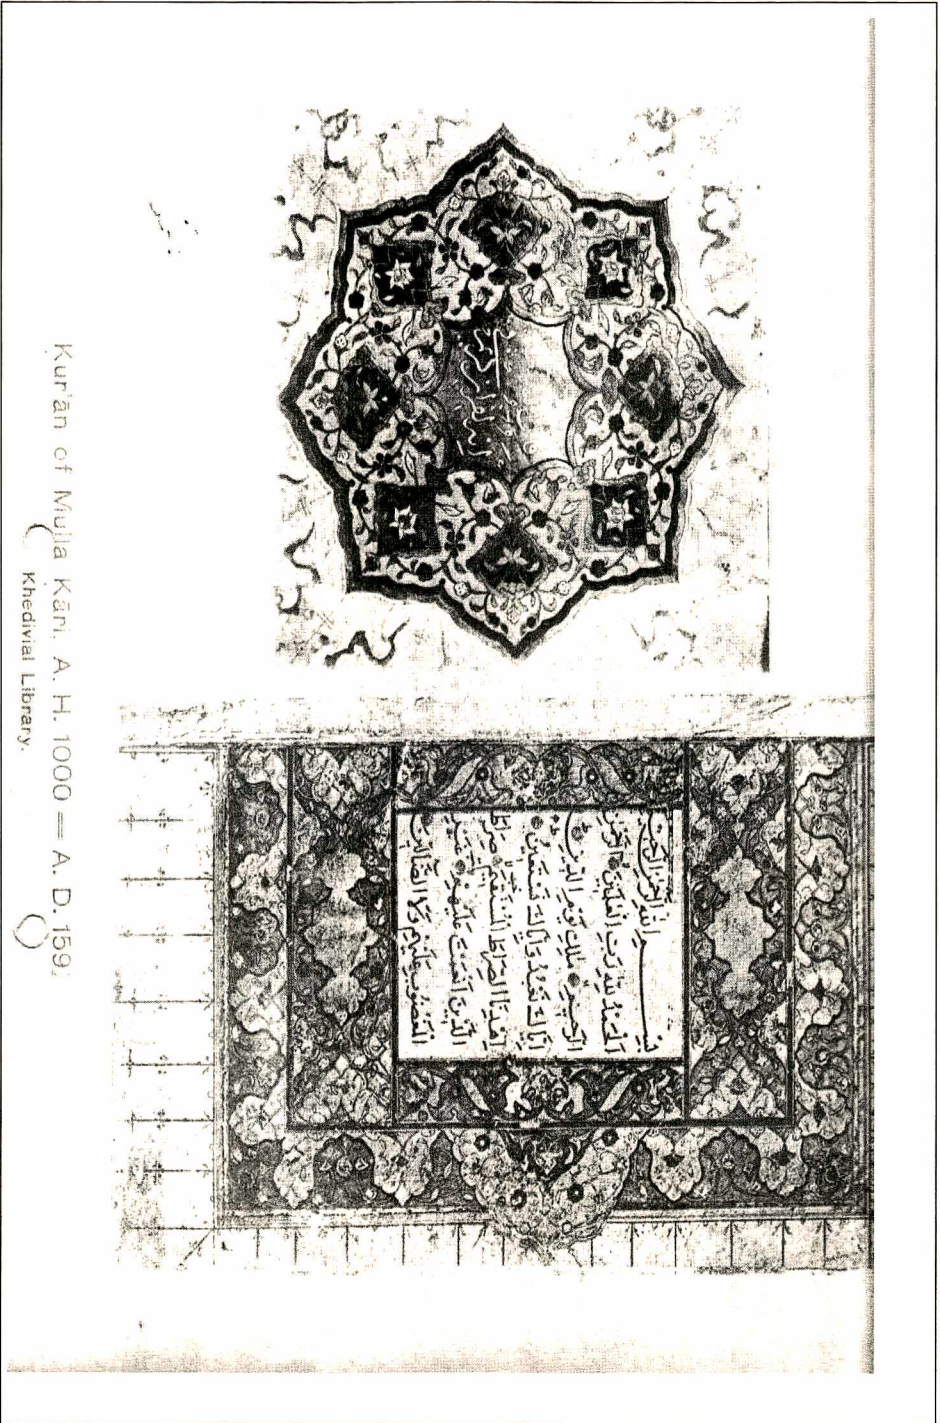 بسم الله الرحمن الرحيم
الحمد لله رب العالمين الرحمن
الرحيم ملك يوم الدين
اياك نعبد واياك نستعين
اهدنا الصراط المستقيم صراط
الذين انعمت عليهم غير
المغضوب عليهم ولا الضالين
Kur'ān of Mulla Kāri. A. H. 1000 = A. D. 159
Khedivial Library.